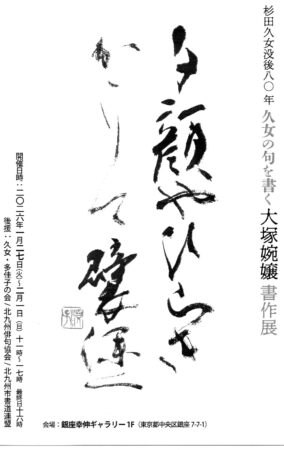 杉田久女没後八〇年 久女の句を書く 大塚婉嬢 書作展
夕顔やひらき
かゝりて襞深く
開催日時:二〇二六年一月二七日(火)~二月一日(日)十一時~十七時 最終日十六時
後援:久女・多佳子の会/北九州俳句協会/北九州市書道連盟
会場:銀座幸伸ギャラリー1F(東京都中央区銀座 7-7-1)